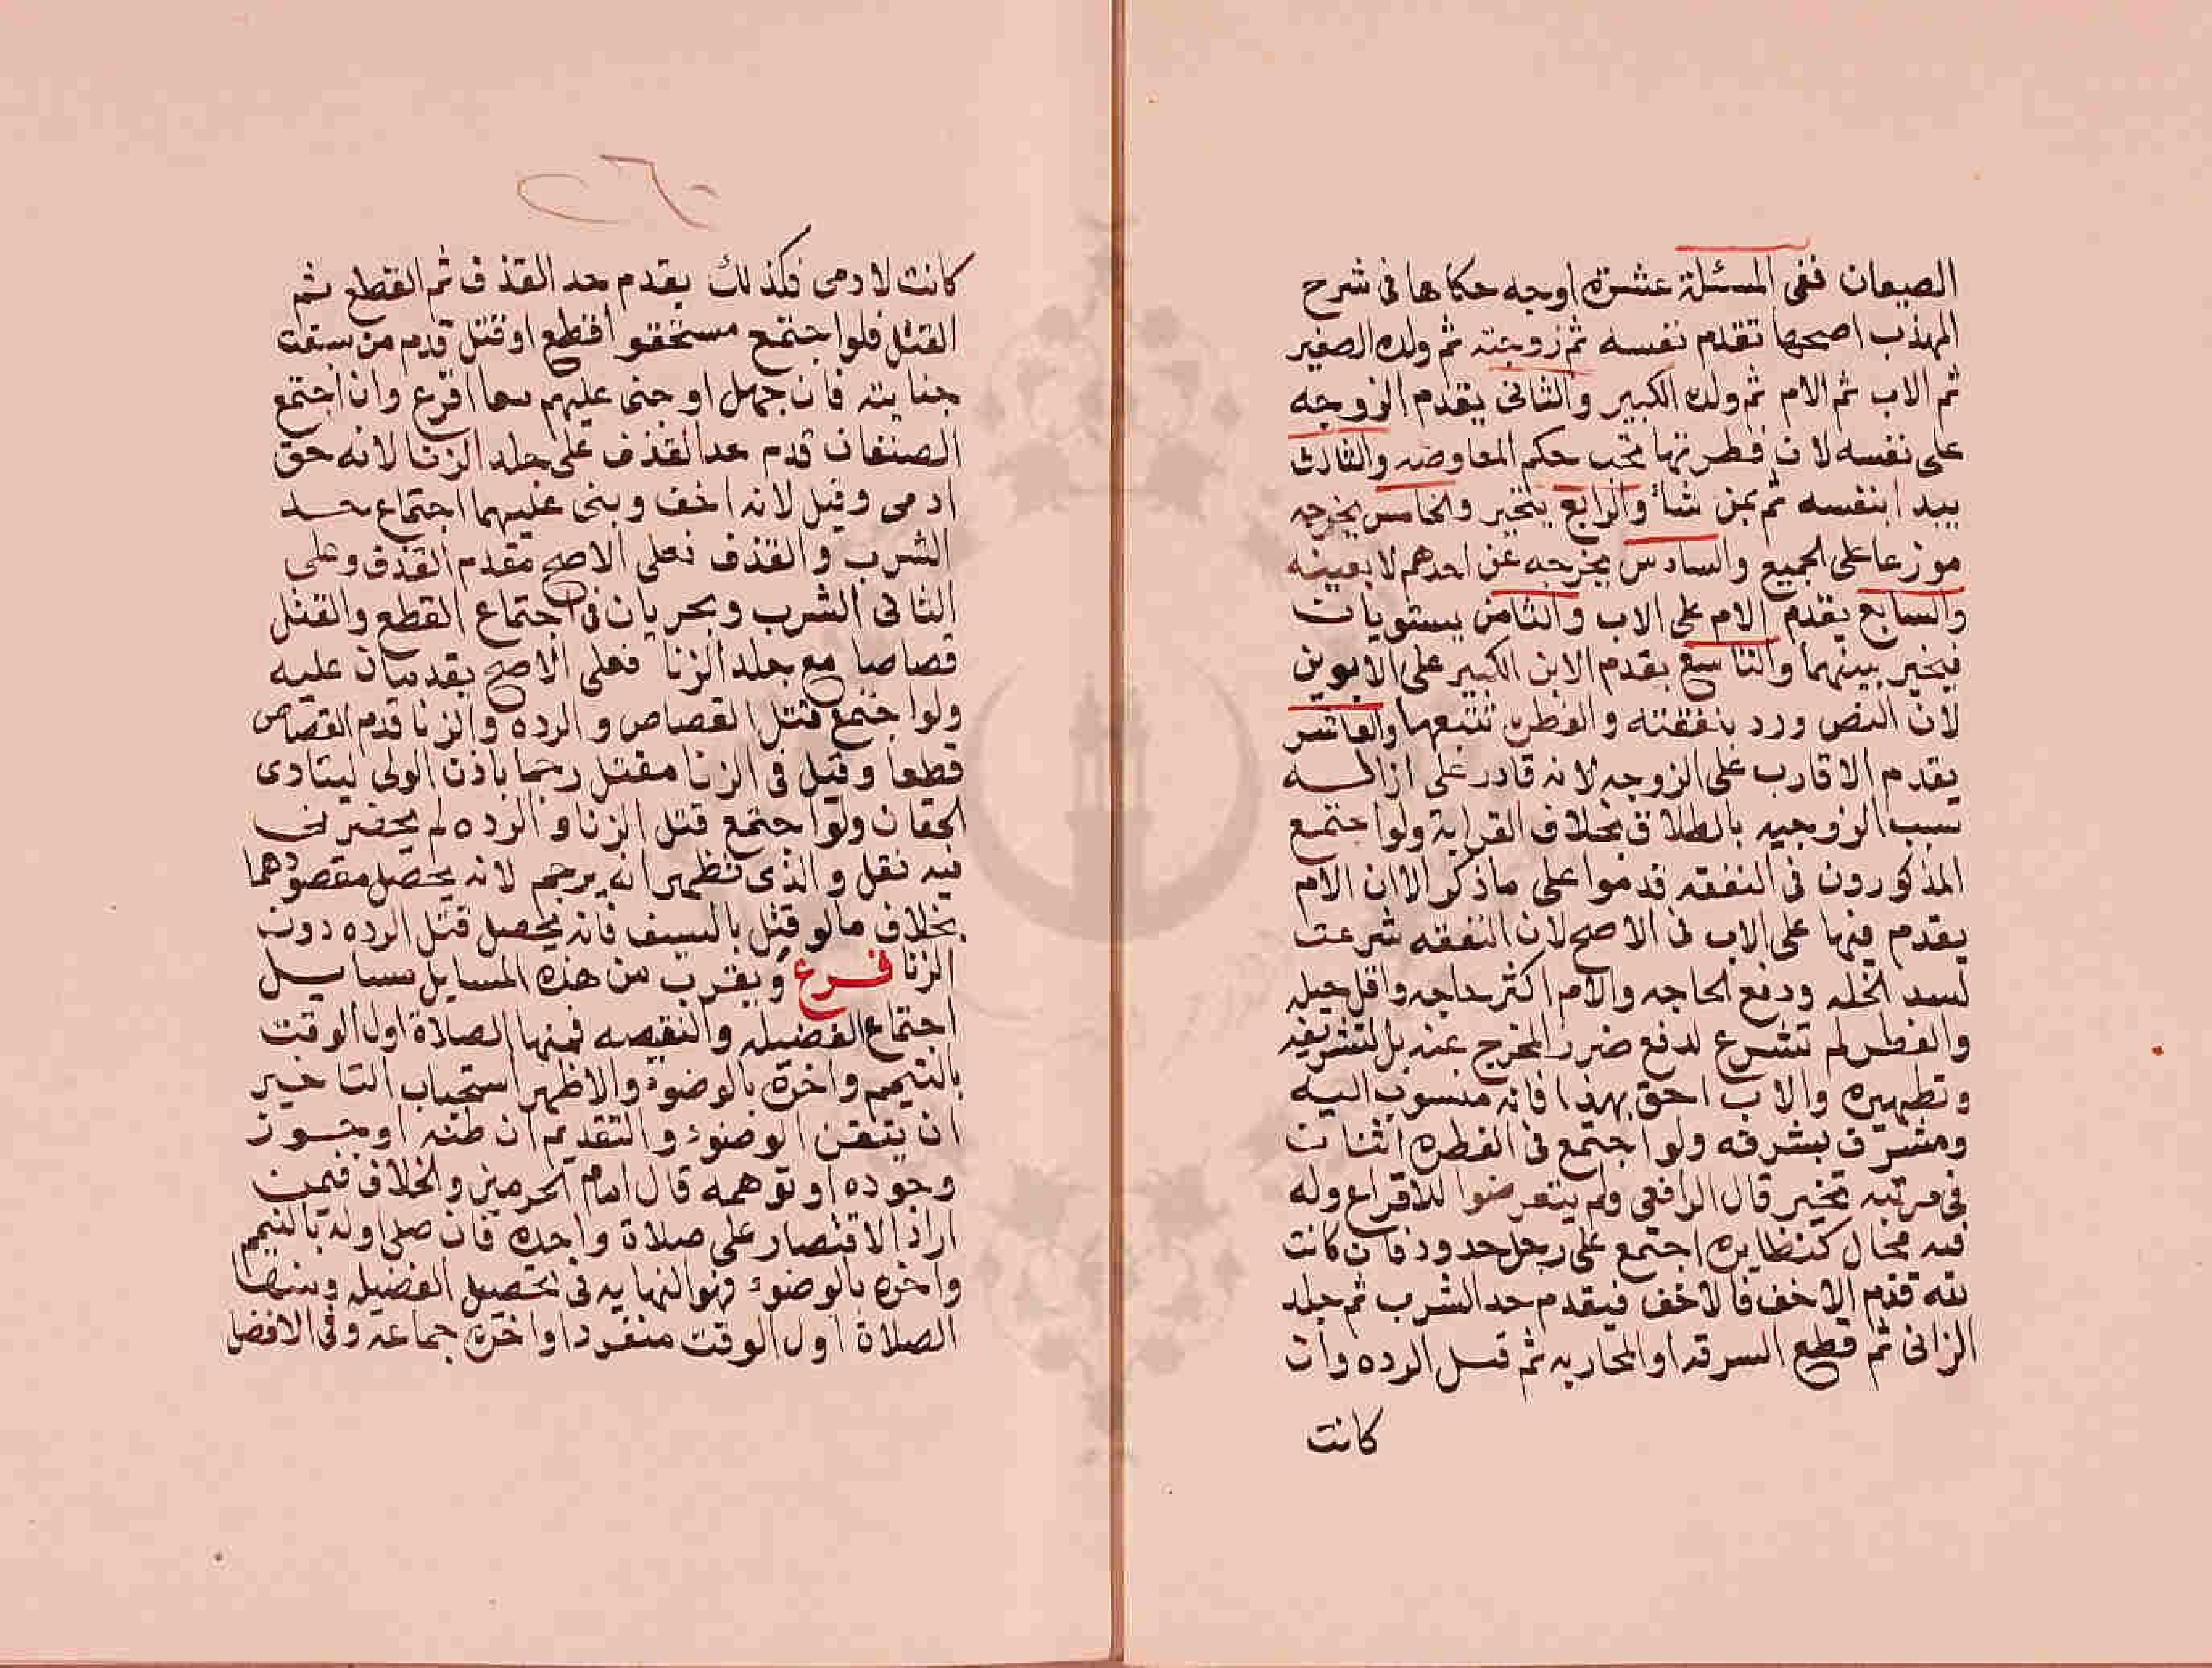 الصيعان ففى المسئلة عشرة اوجه حكاها فى شرح
المهذب اصحها تقدم نفسه ثم زوجته ثم ولده الصغير
ثم الاب ثم الام ثم ولده الكبير والثانى يقدم الزوجه
على نفسه لان فطرتها تجب بحكم المعاوضه والثالث
يبدا بنفسه ثم بمن شأ والرابع يتخير والخامس يخرجه
موزعا على الجميع والسادس يخرجه عن احدهم لا بعينه
والسابع يقدم الام على الاب والثامن يستويان
فيخير بينهما والتاسع يقدم الابن الكبير على الابوين
لان النص ورد بنفقته والفطره تتبعها والعاشر
يقدم الاقارب على الزوجه لانه قادر على ازاله
سبب الزوجيه بالطلاق بخلاف القرابة ولو اجتمع
المذكورون فى النفقه قدموا على ماذكر الاان الام
يقدم فيها على الاب فى الاصح لان النفقه شرعت
لسد الخله ودفع الحاجه والام اكثر حاجه واقل حيله
والفطره لم تشرع لدفع ضرر المخرج عنه بل لتشريفه
وتطهيره والاب احق بهذا فانه منسوب اليه
ومشرف بشرفه ولو اجتمع فى الفطره اثنان
فى مرتبه تخير قال الرافعى ولم يتعرضوا للاقراع وله
فيه مجال كنظايره اجتمع على رجل حدود فان كانت
لله قدم الاخف فالاخف فيقدم حد الشرب ثم جلد
الزانى ثم قطع السرقه او المحاربه ثم قتل الرده وان
كانت
كانت لادمى فكذلك يقدم حد القذف ثم القطع ثم
القتل فلو اجتمع مستحقو اقطع او قتل قدم من سبقت
جنايته فان جهل او جنى عليهم معا اقرع وان اجتمع
الصنفان قدم حد القذف على جلد الزنا لانه حق
ادمى وقيل لانه اخف وبنى عليهما اجتماع حد
الشرب والقذف فعلى الاصح مقدم القذف وعلى
الثانى الشرب ويجريان فى اجتماع القطع والقتل
قصاصا مع جلد الزنا فعلى الاصح يقدمان عليه
ولو اجتمع قتل القصاص والرده والزنا قدم القصاص
قطعا وقيل فى الزنا مقتل رجما باذن الولى ليتادى
الحقان ولو اجتمع قتل الزنا والرده لم يحضرنى
فيه نقل والذى تظهر انه يرجم لانه يحصل مقصودهما
بخلاف مالو قتل بالسيف فانه يحصل قتل الرده دون
الزنا فرع ويقرب من هذه المسايل مسايل
اجتماع الفضيله والنقصه فمنها الصلاة اول الوقت
بالتيمم واخره بالوضوء والاظهر استحباب التاخير
ان يتقن الوضوء والتقديم ان ظنه او جوز
وجوده او توهمه قال امام الحرمين والخلاف فيمن
اراد الاقتصار على صلاة واحده فان صلى اوله بالتيمم
واخره بالوضوء فهو النهايه فى تحصيل الفضيله ومنها
الصلاة اول الوقت منفردا واخره جماعه وفى الافضل